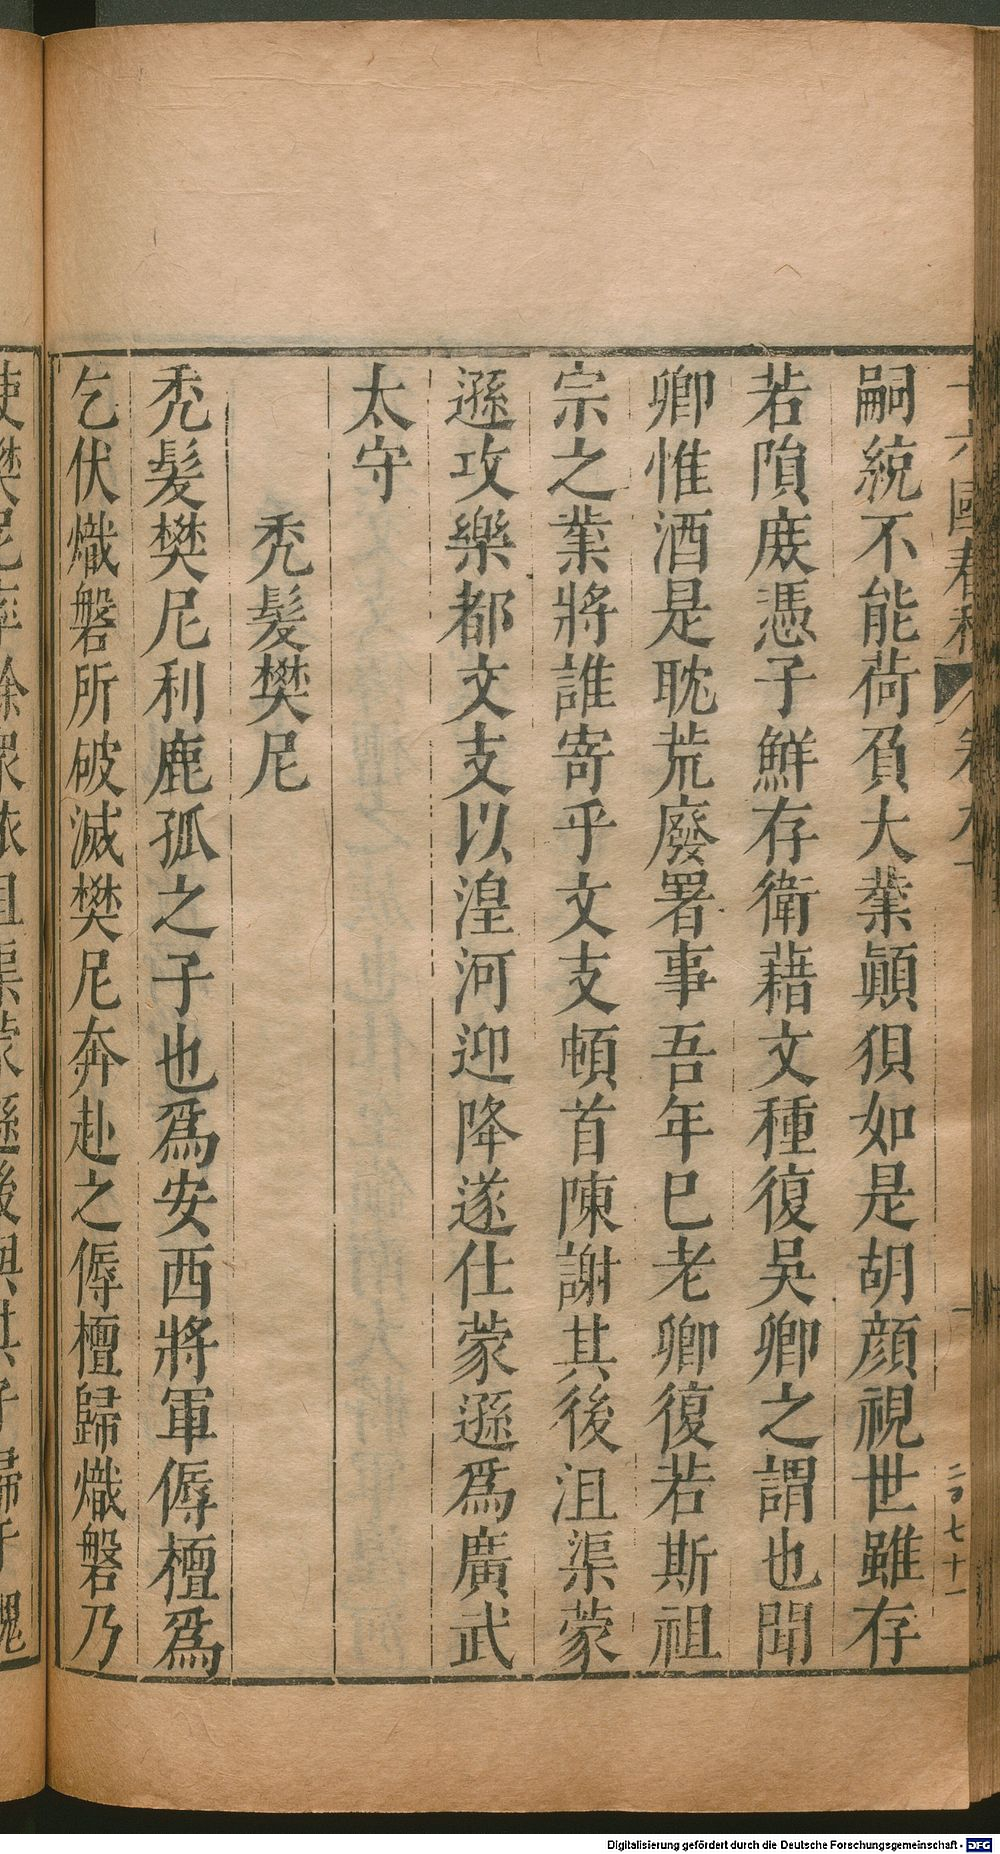 嗣統不能荷負大業顚狽如是胡顔視世雖存
若隕庶憑子鮮存衛藉文種復吳卿之謂也聞
卿惟酒是耽荒廢署事吾年巳老卿復若斯祖
宗之業將誰寄乎文支頓首陳謝其後沮渠蒙
遜攻樂都文支以湟河迎降遂仕蒙遜爲廣武
太守
禿髮樊尼
禿髮樊尼利鹿孤之子也爲安西將軍傉檀爲
乞伏熾磐所破滅樊尼奔赴之傉檀歸熾磐乃
Digitalisierung gefördert durch die Deutsche Forschungsgemeinschaft - DFG